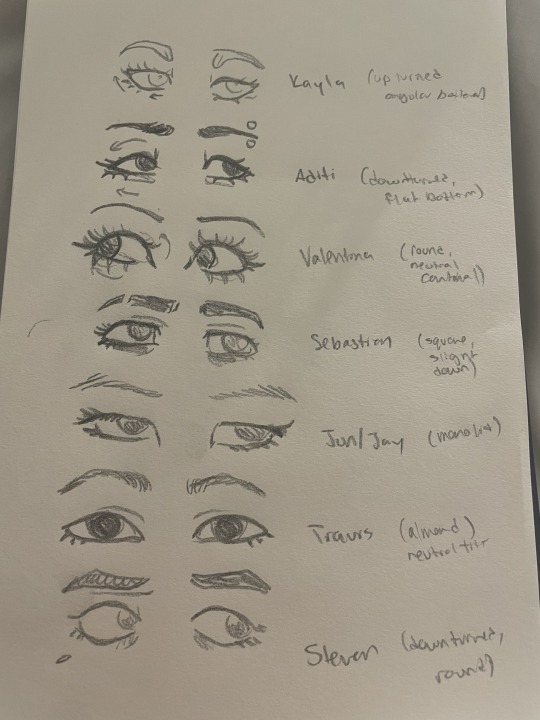 Kayla (upturned
angular
Aditi (downturned,
flat bottom)
Valentina (round,
neutral
Sebastian (square,
slight
down)
Jun/Jay (monolid)
Travis (almond)
neutral tilt
Steven (downturned,
round)